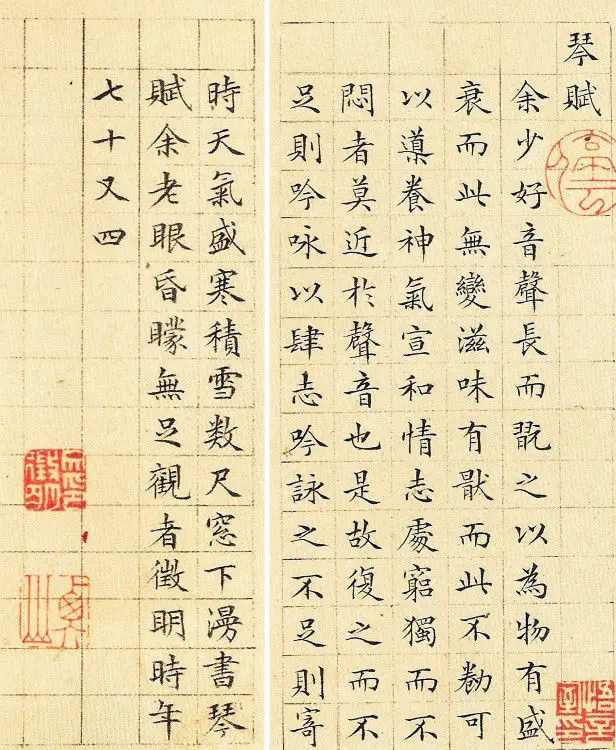 琴賦
停雲
余少好音聲長而翫之以為物有盛
衰而此無變滋味有猒而此不勌可
以導養神氣宣和情志處窮獨而不
悶者莫近於聲音也是故復之而不
足則吟咏以肆志吟詠之不足則寄
悟言室印
時天氣盛寒積雪数尺窓下漫書琴
賦余老眼昏矇無足觀者徵明時年
七十又四
衡山